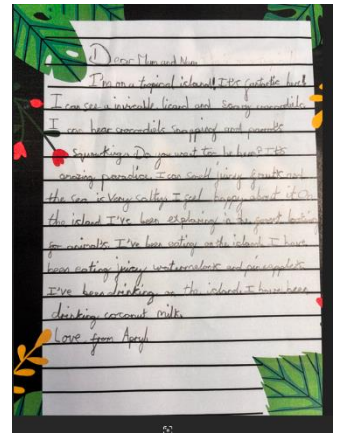 Dear Mum and Mum
I'm on a tropical island! It's fantastic back
I can see a invisable lizard and scary crocodils.
I can hear crocodils snapping and parrots
squawking. Do you want to be here? It's
amazing paradise. I can smell juicy fruits and
the sea is very salty. I feel happy about it. On
the island I've been exploring a forest looking
for animals. I've been eating on the island I have
been eating juicy watermelons and pineapples
I've been drinking on the island. I have been
drinking coconut milk.
Love from April